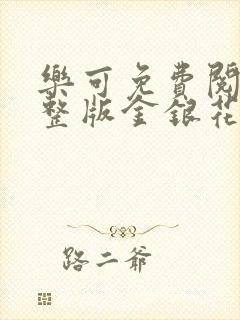 樂可免費閱
整版金銀花
路二爺